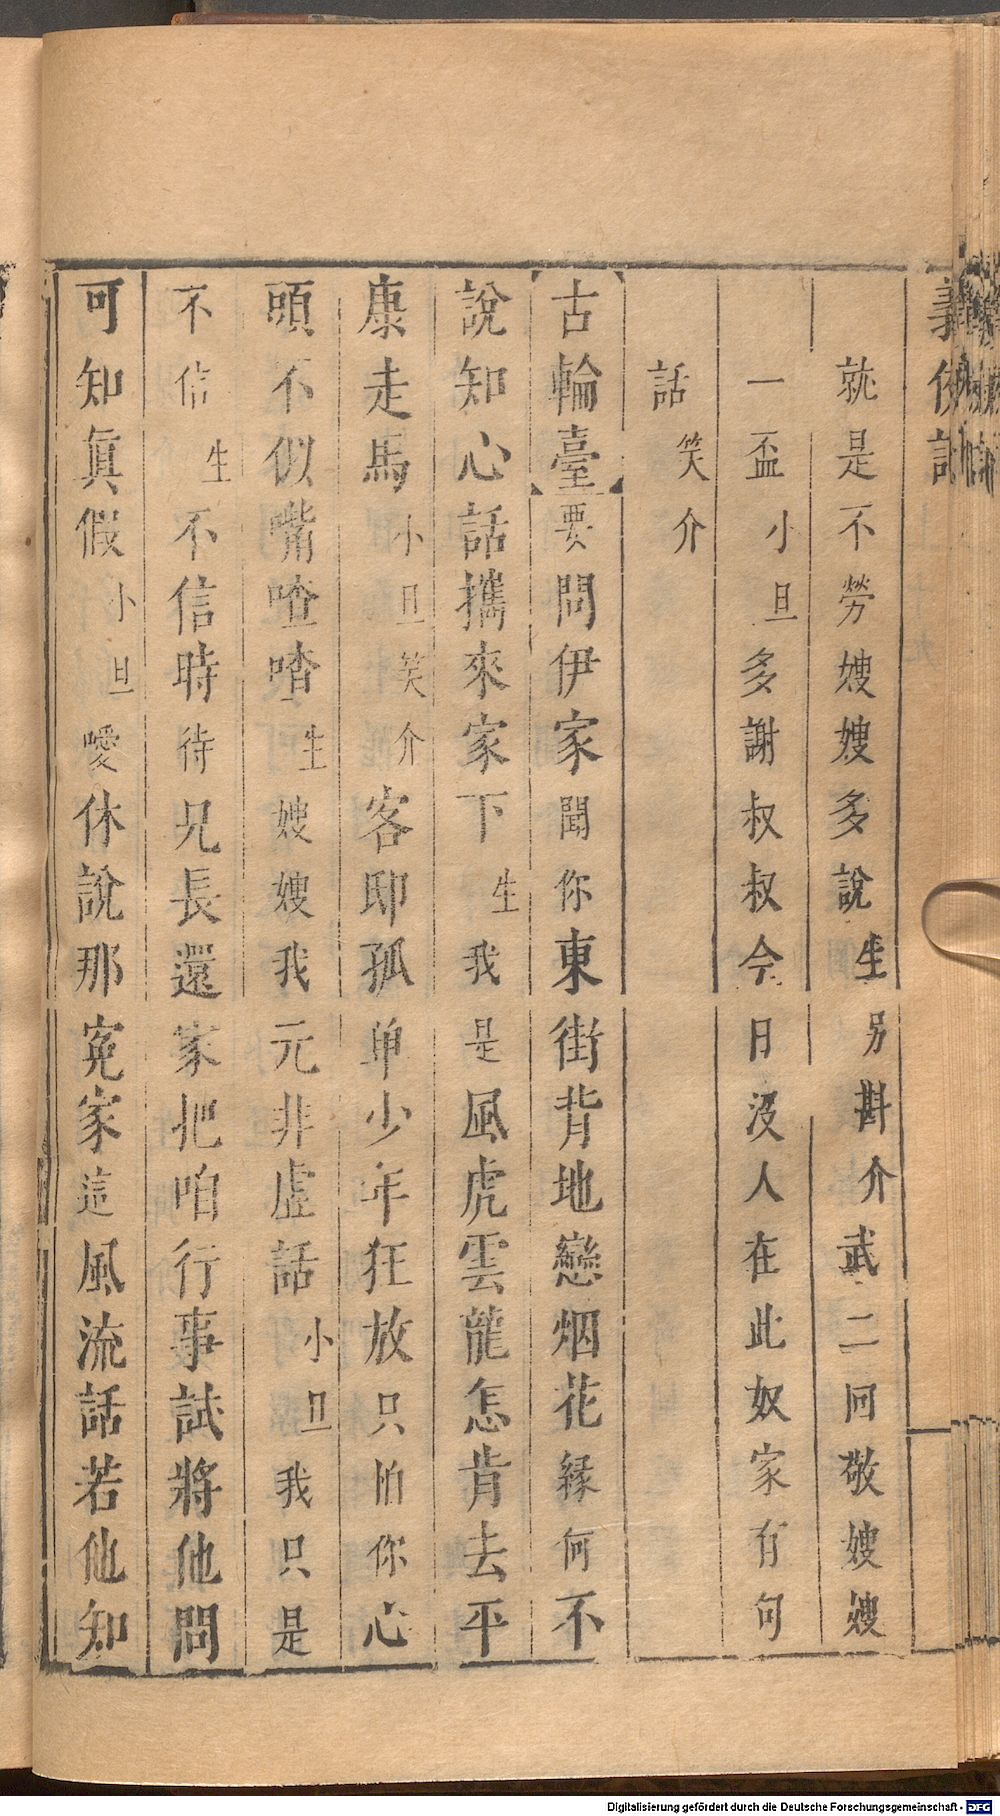 就是不勞嫂嫂多說生另斟介武二回敬嫂嫂
一盃小旦多謝叔叔今日没人在此奴家有句
話笑介
古輪臺要問伊家聞你東街背地戀烟花緣何不
說知心話攜來家下生我是風虎雲龍怎肯去平
康走馬小旦笑介客邸孤单少年狂放只怕你心
頭不似嘴喳喳生嫂嫂我元非虛話小旦我只是
不信生不信時待兄長還家把咱行事試將他問
可知眞假小旦噯休說那寃家這風流話若他知
Digitalisierung gefördert durch die Deutsche Forschungsgemeinschaft - DFG